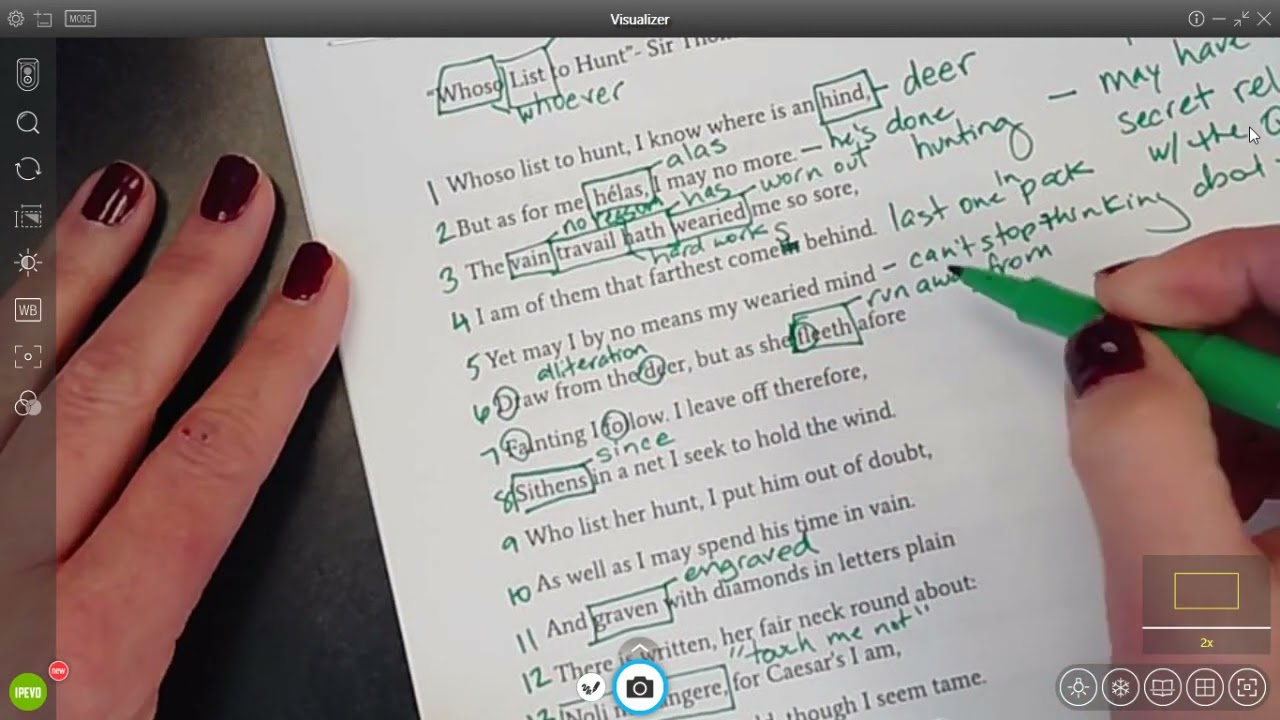 MODE
Visualizer
"Whoso List to Hunt"- Sir
whoever
1 Whoso list to hunt, I know where is an hind, - deer
alas
2 But as for me hélas, I may no more. - he's done hunting
no reason has worn out
3 The vain travail hath wearied me so sore,
hard work
4 I am of them that farthest comes behind. last one in pack
5 Yet may I by no means my wearied mind - can't stop thinking about
aliteration
run away from
6 Draw from the deer, but as she fleeth afore
7 Fainting I follow. I leave off therefore,
since
8 Sithens in a net I seek to hold the wind.
9 Who list her hunt, I put him out of doubt,
10 As well as I may spend his time in vain.
engraved
11 And graven with diamonds in letters plain
12 There is written, her fair neck round about:
"touch me not"
Noli me tangere, for Caesar's I am,
though I seem tame.
- may have
secret
w/ the
WB
2x
IPEVO
new